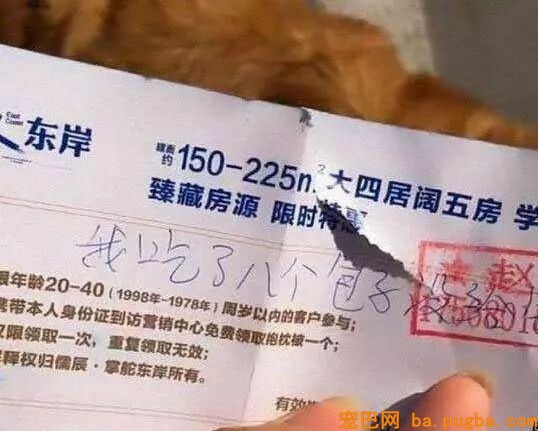 East
Coast
东岸
建面约150-225m²大四居阔五房 学
臻藏房源 限时特惠
我吃了八个包子 没给
赵
限年龄20-40（1998年-1978年）周岁以内的客户参与；
携带本人身份证到访营销中心免费领取抱枕被一个；
仅限领取一次，重复领取无效；
解释权归儒辰·掌舵东岸所有。
有效
宠巴网 ba.pugba.com